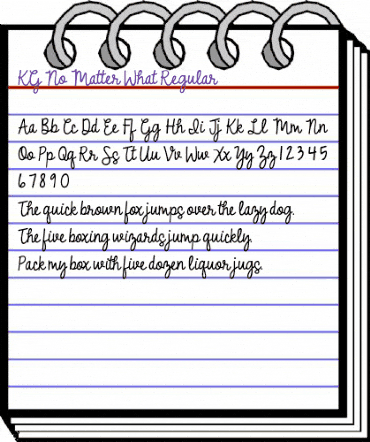 KG No Matter What Regular
Aa Bb Cc Dd Ee Ff Gg Hh Ii Jj Kk Ll Mm Nn
Oo Pp Qq Rr Ss Tt Uu Vv Ww Xx Yy Zz 1 2 3 4 5
6 7 8 9 0
The quick brown fox jumps over the lazy dog.
The five boxing wizards jump quickly.
Pack my box with five dozen liquor jugs.